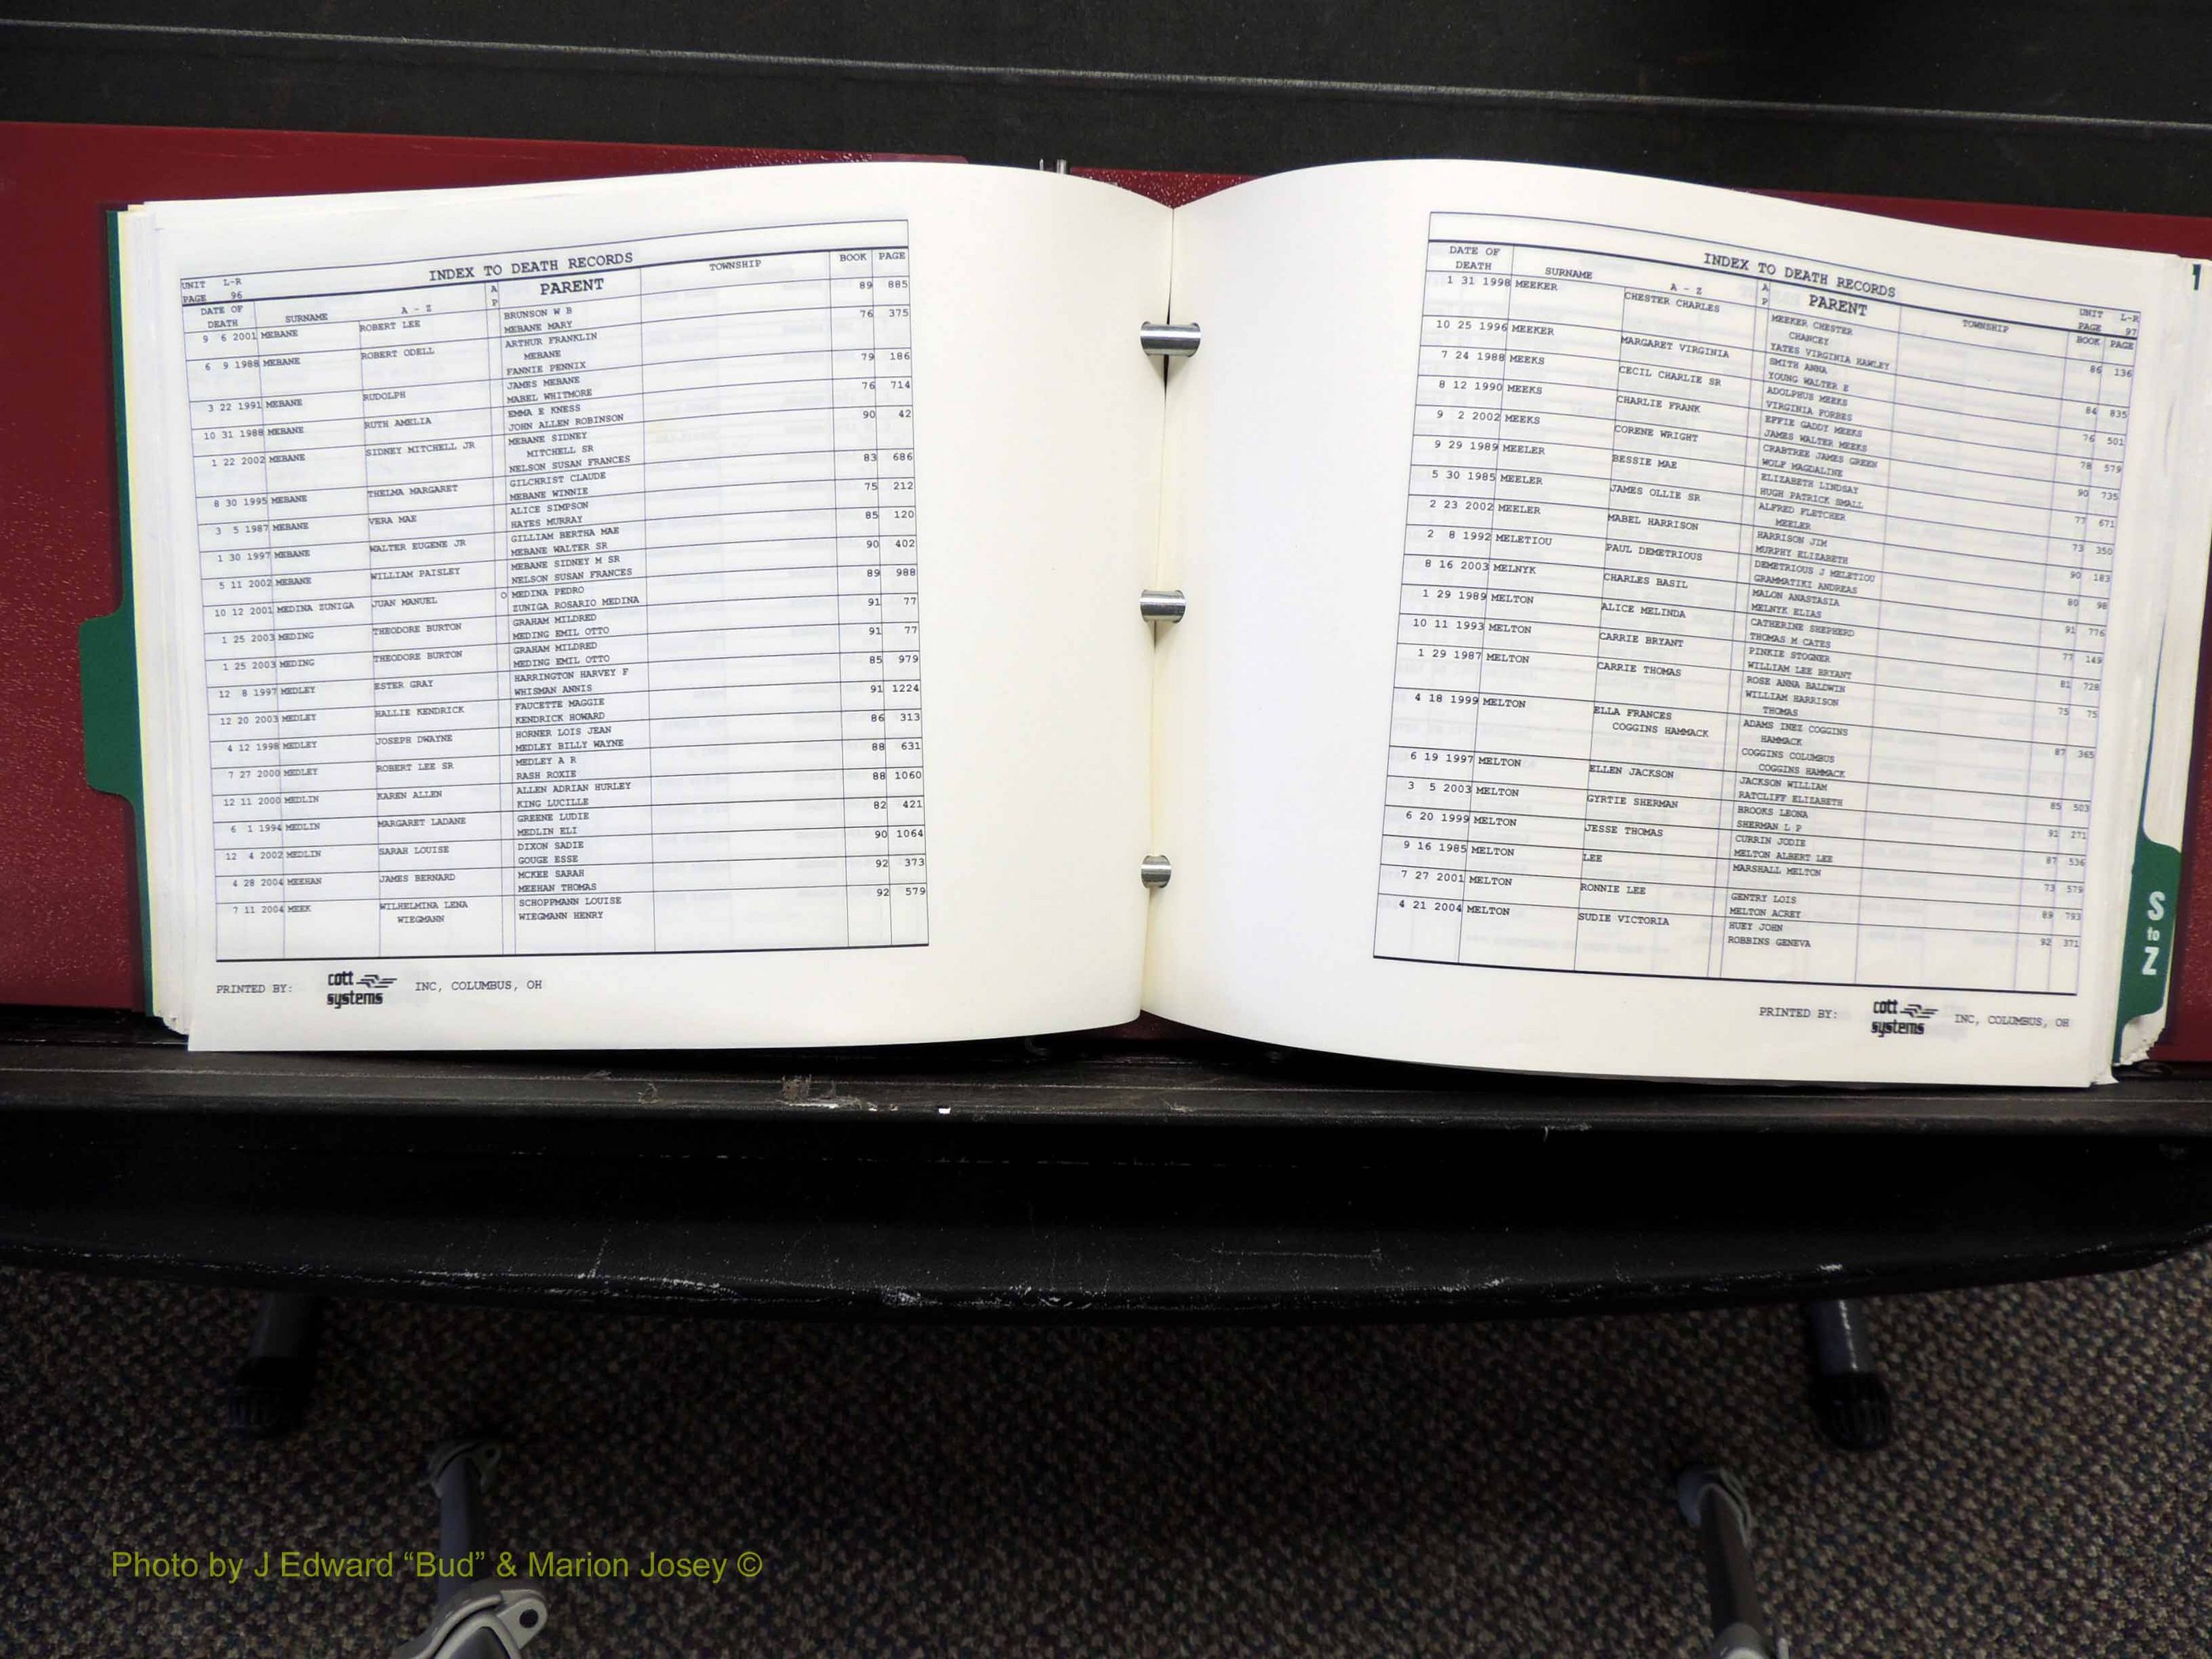 INDEX TO DEATH RECORDS
UNIT L-R
PAGE 96
DATE OF DEATH SURNAME A - Z A P PARENT TOWNSHIP BOOK PAGE
9 6 2001 MEBANE ROBERT LEE BRUNSON W B 89 885
MEBANE MARY
6 9 1988 MEBANE ROBERT ODELL ARTHUR FRANKLIN 76 375
MEBANE
FANNIE PENNIX
3 22 1991 MEBANE RUDOLPH JAMES MEBANE 79 186
MABEL WHITMORE
10 31 1988 MEBANE RUTH AMELIA EMMA E KNESS 76 714
JOHN ALLEN ROBINSON
1 22 2002 MEBANE SIDNEY MITCHELL JR MEBANE SIDNEY 90 42
MITCHELL SR
NELSON SUSAN FRANCES
8 30 1995 MEBANE THELMA MARGARET GILCHRIST CLAUDE 83 686
MEBANE WINNIE
3 5 1987 MEBANE VERA MAE ALICE SIMPSON 75 212
HAYES MURRAY
1 30 1997 MEBANE WALTER EUGENE JR GILLIAM BERTHA MAE 85 120
MEBANE WALTER SR
5 11 2002 MEBANE WILLIAM PAISLEY MEBANE SIDNEY M SR 90 402
NELSON SUSAN FRANCES
10 12 2001 MEDINA ZUNIGA JUAN MANUEL O MEDINA PEDRO 89 988
ZUNIGA ROSARIO MEDINA
1 25 2003 MEDING THEODORE BURTON GRAHAM MILDRED 91 77
MEDING EMIL OTTO
1 25 2003 MEDING THEODORE BURTON GRAHAM MILDRED 91 77
MEDING EMIL OTTO
12 8 1997 MEDLEY ESTER GRAY HARRINGTON HARVEY F 85 979
WHISMAN ANNIS
12 20 2003 MEDLEY HALLIE KENDRICK FAUCETTE MAGGIE 91 1224
KENDRICK HOWARD
4 12 1998 MEDLEY JOSEPH DWAYNE HORNER LOIS JEAN 86 313
MEDLEY BILLY WAYNE
7 27 2000 MEDLEY ROBERT LEE SR MEDLEY A R 88 631
RASH ROXIE
12 11 2000 MEDLIN KAREN ALLEN ALLEN ADRIAN HURLEY 88 1060
KING LUCILLE
6 1 1994 MEDLIN MARGARET LADANE GREENE LUDIE 82 421
MEDLIN ELI
12 4 2002 MEDLIN SARAH LOUISE DIXON SADIE 90 1064
GOUGE ESSE
4 28 2004 MEEHAN JAMES BERNARD MCKEE SARAH 92 373
MEEHAN THOMAS
7 11 2004 MEEK WILHELMINA LENA SCHOPPMANN LOUISE 92 579
WIEGMANN WIEGMANN HENRY
PRINTED BY: cott systems INC, COLUMBUS, OH
INDEX TO DEATH RECORDS
UNIT L-R
PAGE 97
DATE OF DEATH SURNAME A - Z A P PARENT TOWNSHIP BOOK PAGE
1 31 1998 MEEKER CHESTER CHARLES MEEKER CHESTER 86 136
CHANCEY
YATES VIRGINIA HAWLEY
10 25 1996 MEEKER MARGARET VIRGINIA SMITH ANNA 84 835
YOUNG WALTER E
7 24 1988 MEEKS CECIL CHARLIE SR ADOLPHUS MEEKS 76 501
VIRGINIA FORBES
8 12 1990 MEEKS CHARLIE FRANK EFFIE GADDY MEEKS 78 579
JAMES WALTER MEEKS
9 2 2002 MEEKS CORENE WRIGHT CRABTREE JAMES GREEN 90 735
WOLF MAGDALINE
9 29 1989 MEELER BESSIE MAE ELIZABETH LINDSAY 77 671
HUGH PATRICK SMALL
5 30 1985 MEELER JAMES OLLIE SR ALFRED FLETCHER 73 350
MEELER
2 23 2002 MEELER MABEL HARRISON HARRISON JIM 90 183
MURPHY ELIZABETH
2 8 1992 MELETIOU PAUL DEMETRIOUS DEMETRIOUS J MELETIOU 80 98
GRAMMATIKI ANDREAS
8 16 2003 MELNYK CHARLES BASIL MALON ANASTASIA 91 776
MELNYK ELIAS
1 29 1989 MELTON ALICE MELINDA CATHERINE SHEPHERD 77 149
THOMAS M CATES
10 11 1993 MELTON CARRIE BRYANT PINKIE STOGNER 81 728
WILLIAM LEE BRYANT
1 29 1987 MELTON CARRIE THOMAS ROSE ANNA BALDWIN 75 75
WILLIAM HARRISON
THOMAS
4 18 1999 MELTON ELLA FRANCES ADAMS INEZ COGGINS 87 365
COGGINS HAMMACK HAMMACK
COGGINS COLUMBUS
COGGINS HAMMACK
6 19 1997 MELTON ELLEN JACKSON JACKSON WILLIAM 85 503
RATCLIFF ELIZABETH
3 5 2003 MELTON GYRTIE SHERMAN BROOKS LEONA 91 271
SHERMAN L P
6 20 1999 MELTON JESSE THOMAS CURRIN JODIE 87 536
MELTON ALBERT LEE
9 16 1985 MELTON LEE MARSHALL MELTON 73 575
7 27 2001 MELTON RONNIE LEE GENTRY LOIS 89 793
MELTON ACREY
4 21 2004 MELTON SUDIE VICTORIA HUEY JOHN 92 371
ROBBINS GENEVA
PRINTED BY: cott systems INC, COLUMBUS, OH
S
to
Z
Photo by J Edward “Bud” & Marion Josey ©